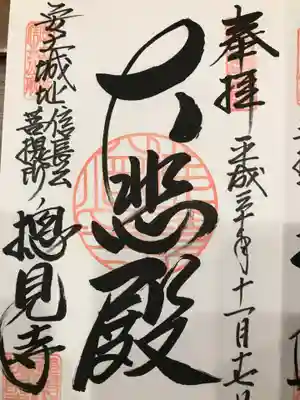 奉拝
平成三十年十一月十七日
大悲殿
安土城址信長公
菩提所
摠見寺